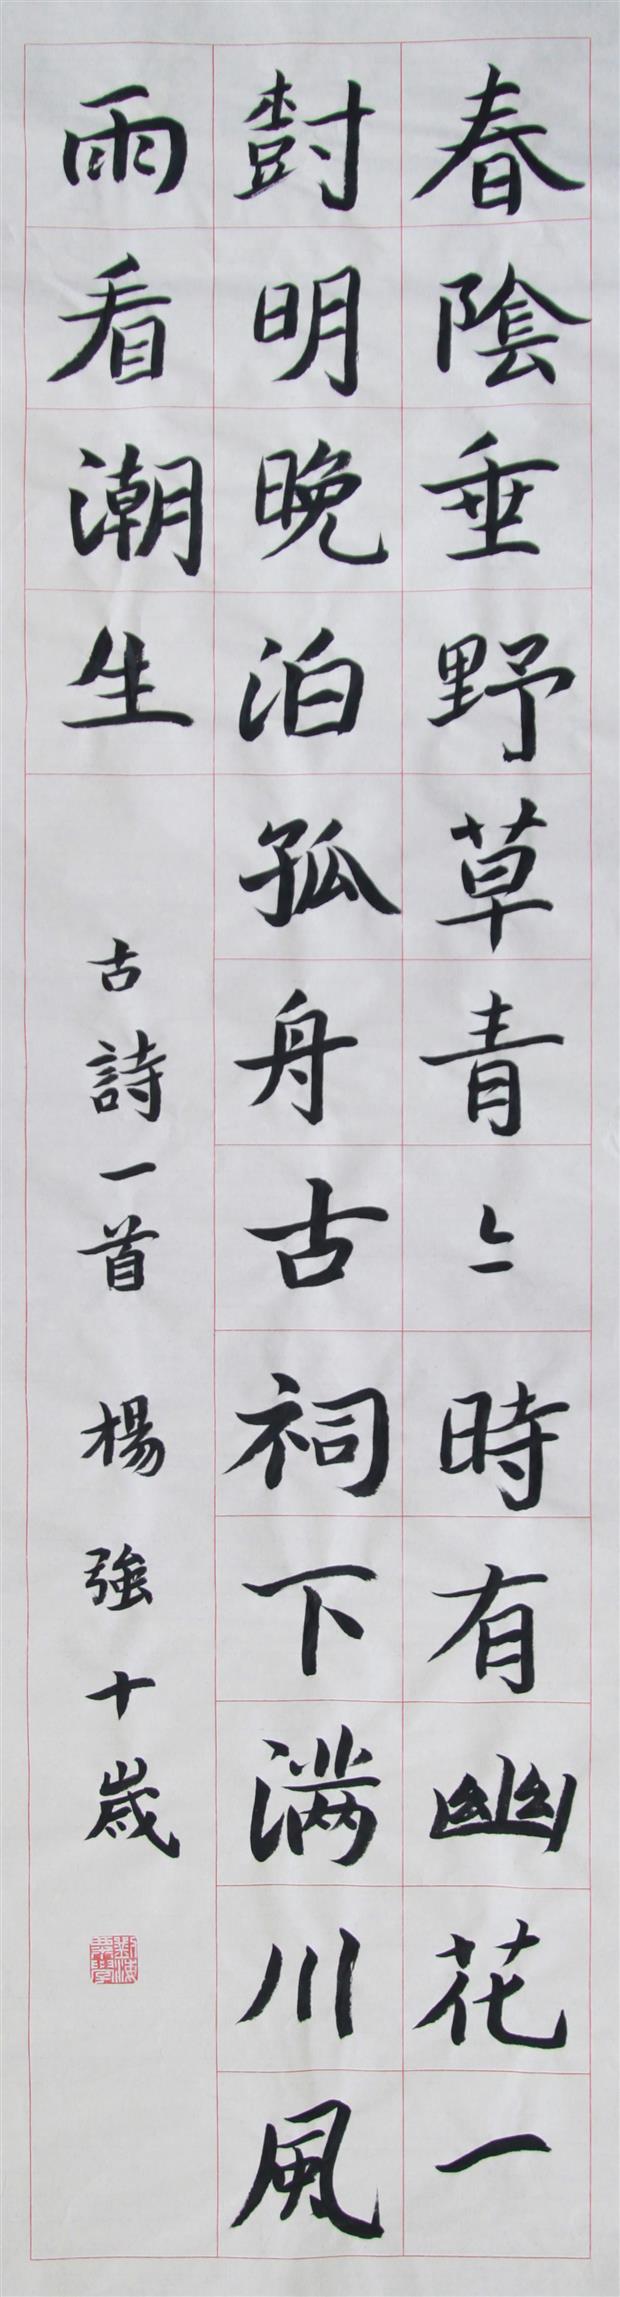 春陰垂野草青〻時有幽花一
尌明晚泊孤舟古祠下滿川風
雨看潮生
古詩一首 楊強十歲